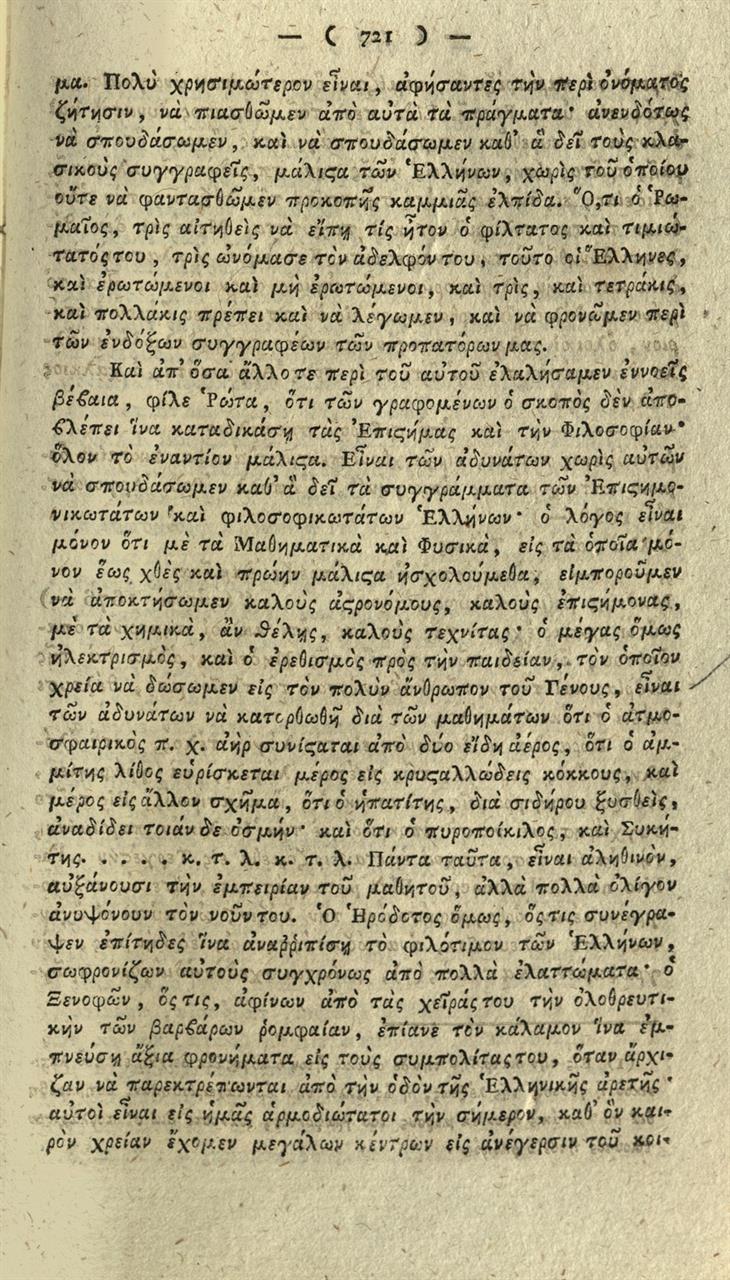 — ( 721 ) —
μα. Πολὺ χρησιμώτερον εἶναι, ἀφήσαντες τὴν περὶ ὀνόματος
ζήτησιν, νὰ πιασθῶμεν ἀπὸ αὐτὰ τὰ πράγματα· ἀνενδότως
νὰ σπουδάσωμεν, καὶ νὰ σπουδάσωμεν καθ' ἃ δεῖ τοὺς κλα-
σικοὺς συγγραφεῖς, μάλιϛα τῶν Ἑλλήνων, χωρὶς τοῦ ὁποίου
οὔτε νὰ φαντασθῶμεν προκοπῆς καμμιᾶς ἐλπίδα. Ὅ,τι ὁ Ῥω-
μαῖος, τρὶς αἰτηθεὶς νὰ εἴπῃ τίς ἦτον ὁ φίλτατος καὶ τιμιώ-
τατός του, τρὶς ὠνόμασε τὸν ἀδελφόν του, τοῦτο οἱ Ἕλληνες,
καὶ ἐρωτώμενοι καὶ μὴ ἐρωτώμενοι, καὶ τρὶς, καὶ τετράκις,
καὶ πολλάκις πρέπει καὶ νὰ λέγωμεν, καὶ νὰ φρονῶμεν περὶ
τῶν ἐνδόξων συγγραφέων τῶν προπατόρων μας.
Καὶ ἀπ' ὅσα ἄλλοτε περὶ τοῦ αὐτοῦ ἐλαλήσαμεν ἐννοεῖς
βέϐαια, φίλε Ῥώτα, ὅτι τῶν γραφομένων ὁ σκοπὸς δὲν ἀπο-
ϐλέπει ἵνα καταδικάσῃ τὰς Ἐπιϛήμας καὶ τὴν Φιλοσοφίαν·
ὅλον τὸ ἐναντίον μάλιϛα. Εἶναι τῶν ἀδυνάτων χωρὶς αὐτῶν
νὰ σπουδάσωμεν καθ' ἃ δεῖ τὰ συγγράμματα τῶν Ἐπιϛημο-
νικωτάτων καὶ φιλοσοφικωτάτων Ἑλλήνων· ὁ λόγος εἶναι
μόνον ὅτι μὲ τὰ Μαθηματικὰ καὶ Φυσικὰ, εἰς τὰ ὁποῖα μό-
νον ἕως χθὲς καὶ πρώην μάλιϛα ἠσχολούμεθα, εἰμποροῦμεν
νὰ ἀποκτήσωμεν καλοὺς ἀϛρονόμους, καλοὺς ἐπιϛήμονας,
μὲ τὰ χημικὰ, ἂν θέλῃς, καλοὺς τεχνίτας· ὁ μέγας ὅμως
ἠλεκτρισμὸς, καὶ ὁ ἐρεθισμὸς πρὸς τὴν παιδείαν, τὸν ὁποῖον
χρεία νὰ δώσωμεν εἰς τὸν πολὺν ἄνθρωπον τοῦ Γένους, εἶναι
τῶν ἀδυνάτων νὰ κατορθωθῇ διὰ τῶν μαθημάτων ὅτι ὁ ἀτμο-
σφαιρικὸς π. χ. ἀὴρ συνίϛαται ἀπὸ δύο εἴδη ἀέρος, ὅτι ὁ ἀμ-
μίτης λίθος εὑρίσκεται μέρος εἰς κρυϛαλλώδεις κόκκους, καὶ
μέρος εἰς ἄλλον σχῆμα, ὅτι ὁ ἡπατίτης, διὰ σιδήρου ξυσθεὶς,
ἀναδίδει τοιάνδε ὀσμήν· καὶ ὅτι ὁ πυροποίκιλος, καὶ Συκή-
της. . . . . κ. τ. λ. κ. τ. λ. Πάντα ταῦτα, εἶναι ἀληθινὸν,
αὐξάνουσι τὴν ἐμπειρίαν τοῦ μαθητοῦ, ἀλλὰ πολλὰ ὀλίγον
ἀνυψόνουν τὸν νοῦν του. Ὁ Ἡρόδοτος ὅμως, ὅϛις συνέγρα-
ψεν ἐπίτηδες ἵνα ἀναῤῥιπίσῃ τὸ φιλότιμον τῶν Ἑλλήνων,
σωφρονίζων αὐτοὺς συγχρόνως ἀπὸ πολλὰ ἐλαττώματα· ὁ
Ξενοφῶν, ὅϛις, ἀφίνων ἀπὸ τὰς χεῖράς του τὴν ὀλοθρευτι-
κὴν τῶν βαρϐάρων ῥομφαίαν, ἐπίανε τὸν κάλαμον ἵνα ἐμ-
πνεύσῃ ἄξια φρονήματα εἰς τοὺς συμπολίτας του, ὅταν ἄρχι-
ζαν νὰ παρεκτρέπωνται ἀπὸ τὴν ὁδὸν τῆς Ἑλληνικῆς ἀρετῆς·
αὐτοὶ εἶναι εἰς ἡμᾶς ἁρμοδιώτατοι τὴν σήμερον, καθ' ὃν και-
ρὸν χρείαν ἔχομεν μεγάλων κέντρων εἰς ἀνέγερσιν τοῦ κοι-